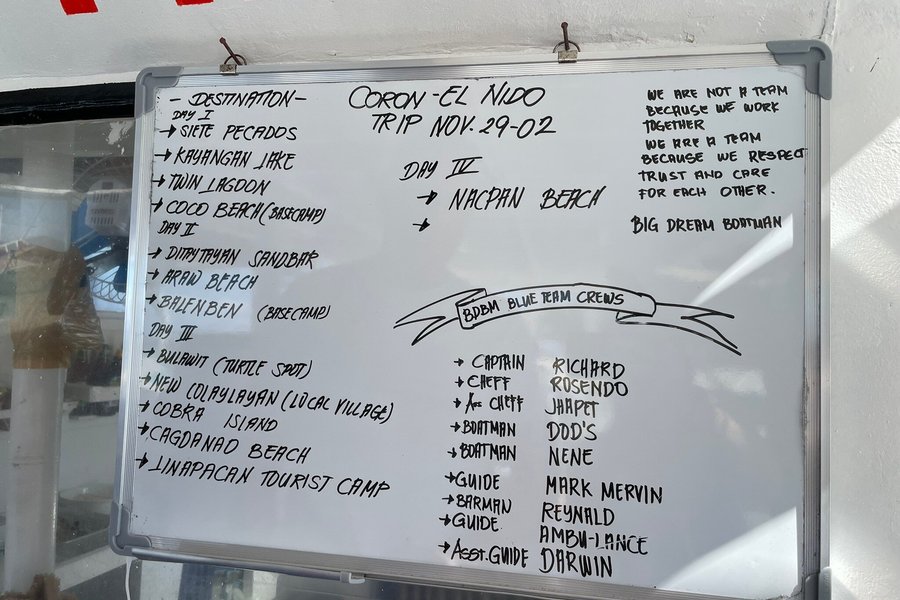 - DESTINATION -
DAY I
→ SIETE PECADOS
→ KAYANGAN LAKE
→ TWIN LAGOON
→ COCO BEACH (BASECAMP)
DAY II
→ DITAYTAYAN SANDBAR
→ ARAW BEACH
→ BALENBEN (BASECAMP)
DAY III
→ BULAWIT (TURTLE SPOT)
→ NEW COLAYLAYAN (LOCAL VILLAGE)
→ COBRA ISLAND
→ CAGDANAO BEACH
→ LINAPACAN TOURIST CAMP
CORON - EL NIDO
TRIP NOV. 29-02
DAY IV
→ NACPAN BEACH
→
WE ARE NOT A TEAM
BECAUSE WE WORK
TOGETHER
WE ARE A TEAM
BECAUSE WE RESPECT
TRUST AND CARE
FOR EACH OTHER.
BIG DREAM BOATMAN
BDBM BLUE TEAM CREWS
→ CAPTAIN RICHARD
→ CHEFF ROSENDO
→ Ass CHEFF JHAPET
→ BOATMAN DOD'S
→ BOATMAN NENE
→ GUIDE MARK MERVIN
→ BARMAN REYNALD
→ GUIDE AMBU-LANCE
→ Asst. GUIDE DARWIN